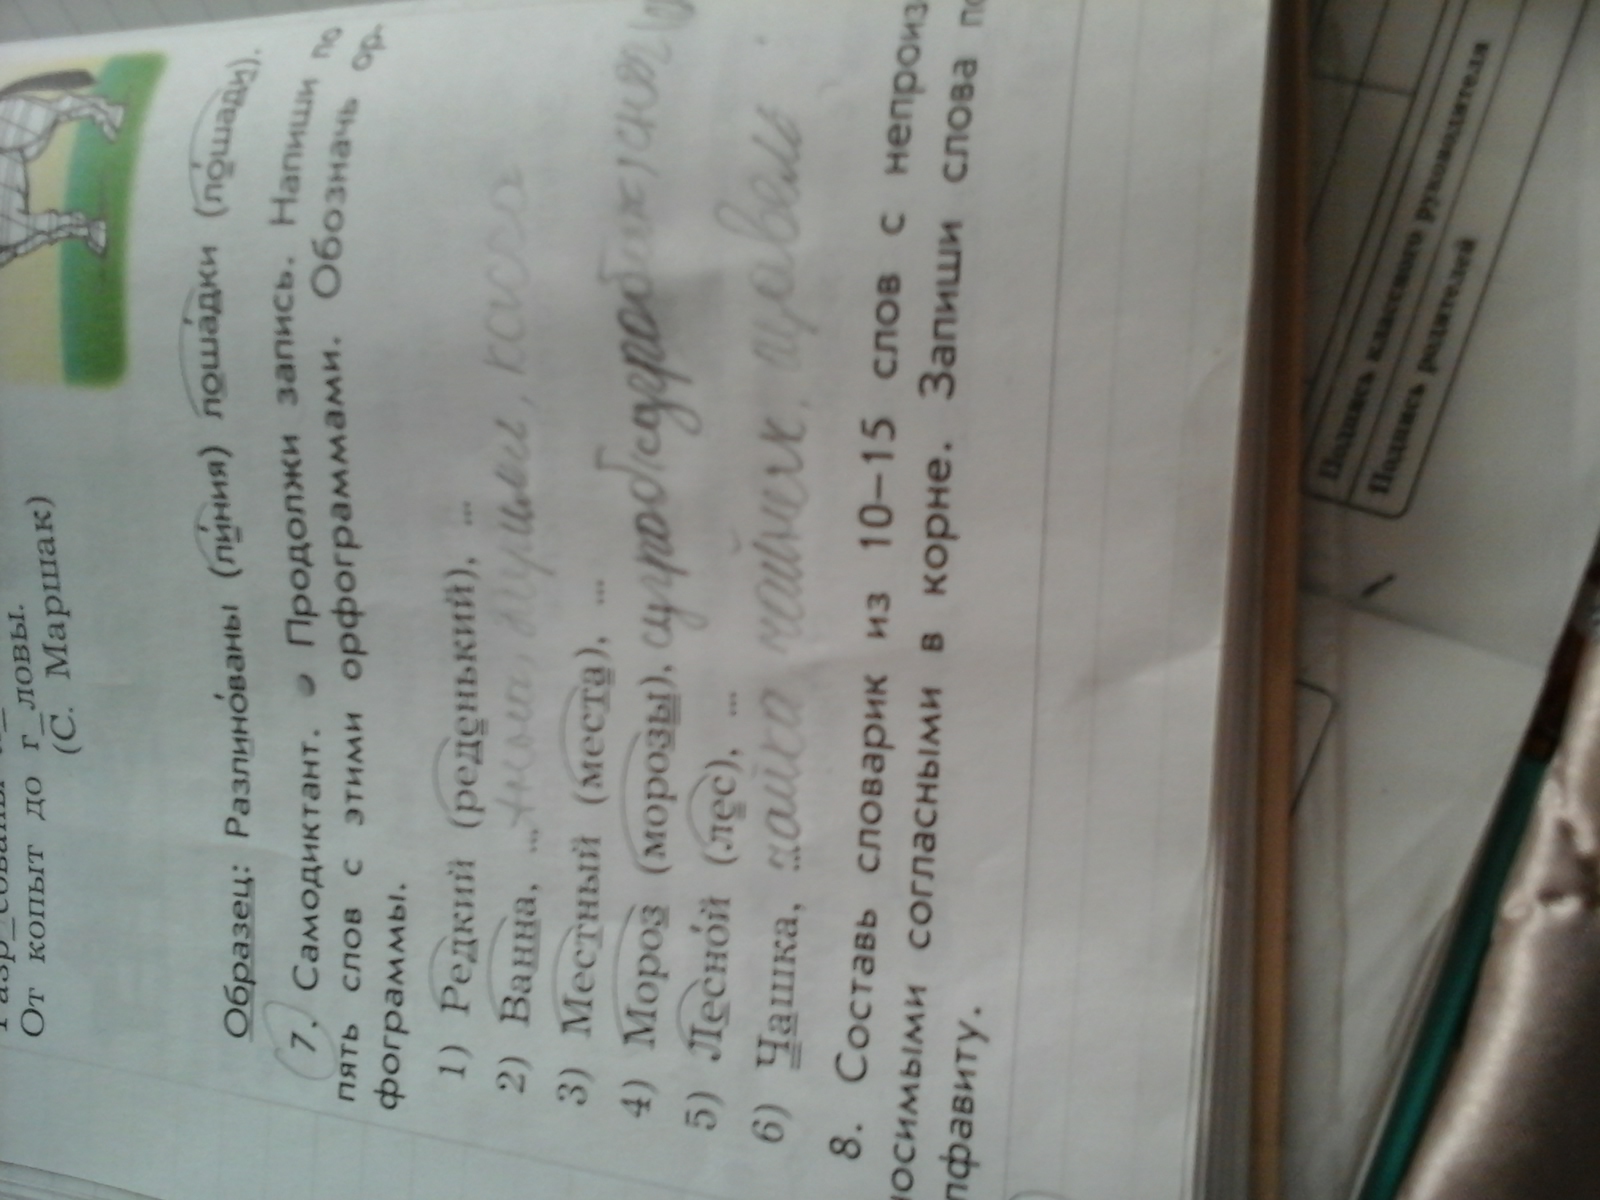 От копыт до г_ловы.
(С. Маршак)
Образец: Разлино́ваны (ли́ния) лоша́дки (ло́шади).
7. Самодиктант. Продолжи запись. Напиши по
пять слов с этими орфограммами. Обозначь ор-
фограммы.
1) Редкий (реденький), ...
2) Ванна, ... касса
3) Местный (места), ...
4) Мороз (морозы), сугроб
5) Лесно́й (лес), ...
6) Чашка, ... чайка чайник, щавель
8. Составь словарик из 10–15 слов с непроиз
носимыми согласными в корне. Запиши слова по
лфавиту.
Подпись классного руководителя
Подпись родителей